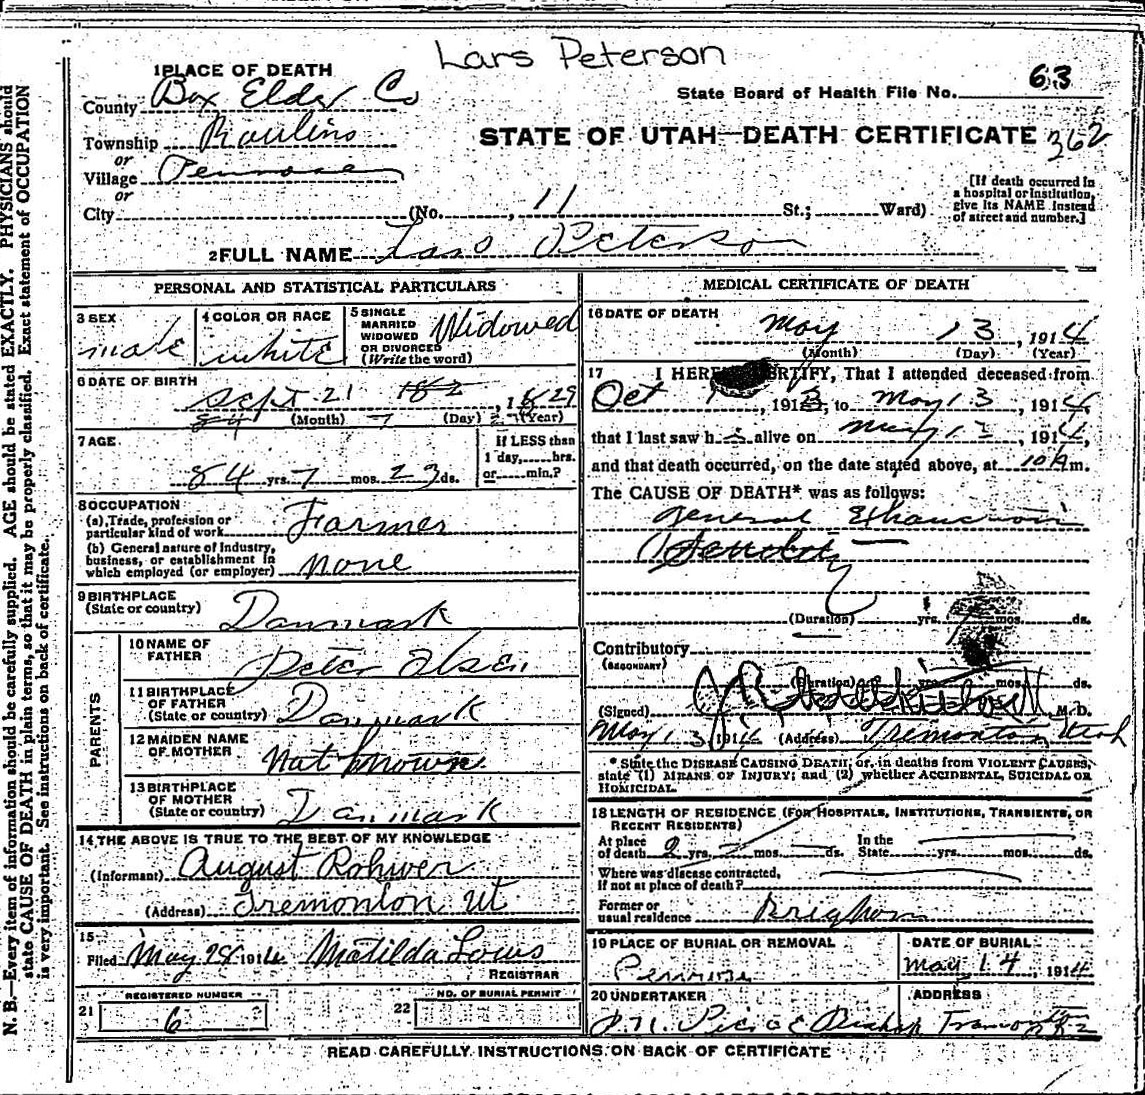 Lars Peterson
1 PLACE OF DEATH
County Box Elder Co
State Board of Health File No. 63
Township Rawlins
STATE OF UTAH—DEATH CERTIFICATE 362
or
Village Penrose
or
City (No. , 11 St.; Ward)
[If death occurred in
a hospital or institution,
give its NAME instead
of street and number.]
2 FULL NAME Lars Peterson
PERSONAL AND STATISTICAL PARTICULARS
3 SEX
male
4 COLOR OR RACE
white
5 SINGLE
MARRIED
WIDOWED
OR DIVORCED
(Write the word)
Widowed
6 DATE OF BIRTH
Sept 21 182 , 1829
84 (Month) 7 (Day) 23 (Year)
7 AGE
84 yrs. 7 mos. 23 ds.
If LESS than
1 day, hrs.
or min.?
8 OCCUPATION
(a) Trade, profession or
particular kind of work Farmer
(b) General nature of industry,
business, or establishment in
which employed (or employer) none
9 BIRTHPLACE
(State or country) Danmark
PARENTS
10 NAME OF
FATHER Peter Olsen
11 BIRTHPLACE
OF FATHER
(State or country) Danmark
12 MAIDEN NAME
OF MOTHER Not known
13 BIRTHPLACE
OF MOTHER
(State or country) Danmark
14 THE ABOVE IS TRUE TO THE BEST OF MY KNOWLEDGE
(Informant) August Rohwer
(Address) Tremonton Ut
15
Filed May 28 1914 Matilda
REGISTRAR
REGISTERED NUMBER
21 6
NO. OF BURIAL PERMIT
22
MEDICAL CERTIFICATE OF DEATH
16 DATE OF DEATH
May 13 , 1914
(Month) (Day) (Year)
17 I HEREBY CERTIFY, That I attended deceased from
Oct , 1913, to May 13 , 1914,
that I last saw h alive on May 13 , 1914,
and that death occurred, on the date stated above, at 10 A m.
The CAUSE OF DEATH* was as follows:
General Exhaustion
Senility
(Duration) yrs. mos. ds.
Contributory
(SECONDARY)
(Duration) yrs. mos. ds.
(Signed) M. D.
May 13 1914 (Address) Tremonton Utah
* State the DISEASE CAUSING DEATH; or, in deaths from VIOLENT CAUSES,
state (1) MEANS OF INJURY; and (2) whether ACCIDENTAL, SUICIDAL OR
HOMICIDAL.
18 LENGTH OF RESIDENCE (FOR HOSPITALS, INSTITUTIONS, TRANSIENTS, OR
RECENT RESIDENTS)
At place
of death 2 yrs. mos. ds.
In the
State yrs. mos. ds.
Where was disease contracted,
if not at place of death?
Former or
usual residence Brigham
19 PLACE OF BURIAL OR REMOVAL
Penrose
DATE OF BURIAL
May 14 , 1914
20 UNDERTAKER
Bishop
ADDRESS
READ CAREFULLY INSTRUCTIONS ON BACK OF CERTIFICATE
N. B.—Every item of information should be carefully supplied. AGE should be stated EXACTLY. PHYSICIANS should
state CAUSE OF DEATH in plain terms, so that it may be properly classified. Exact statement of OCCUPATION
is very important. See instructions on back of certificate.